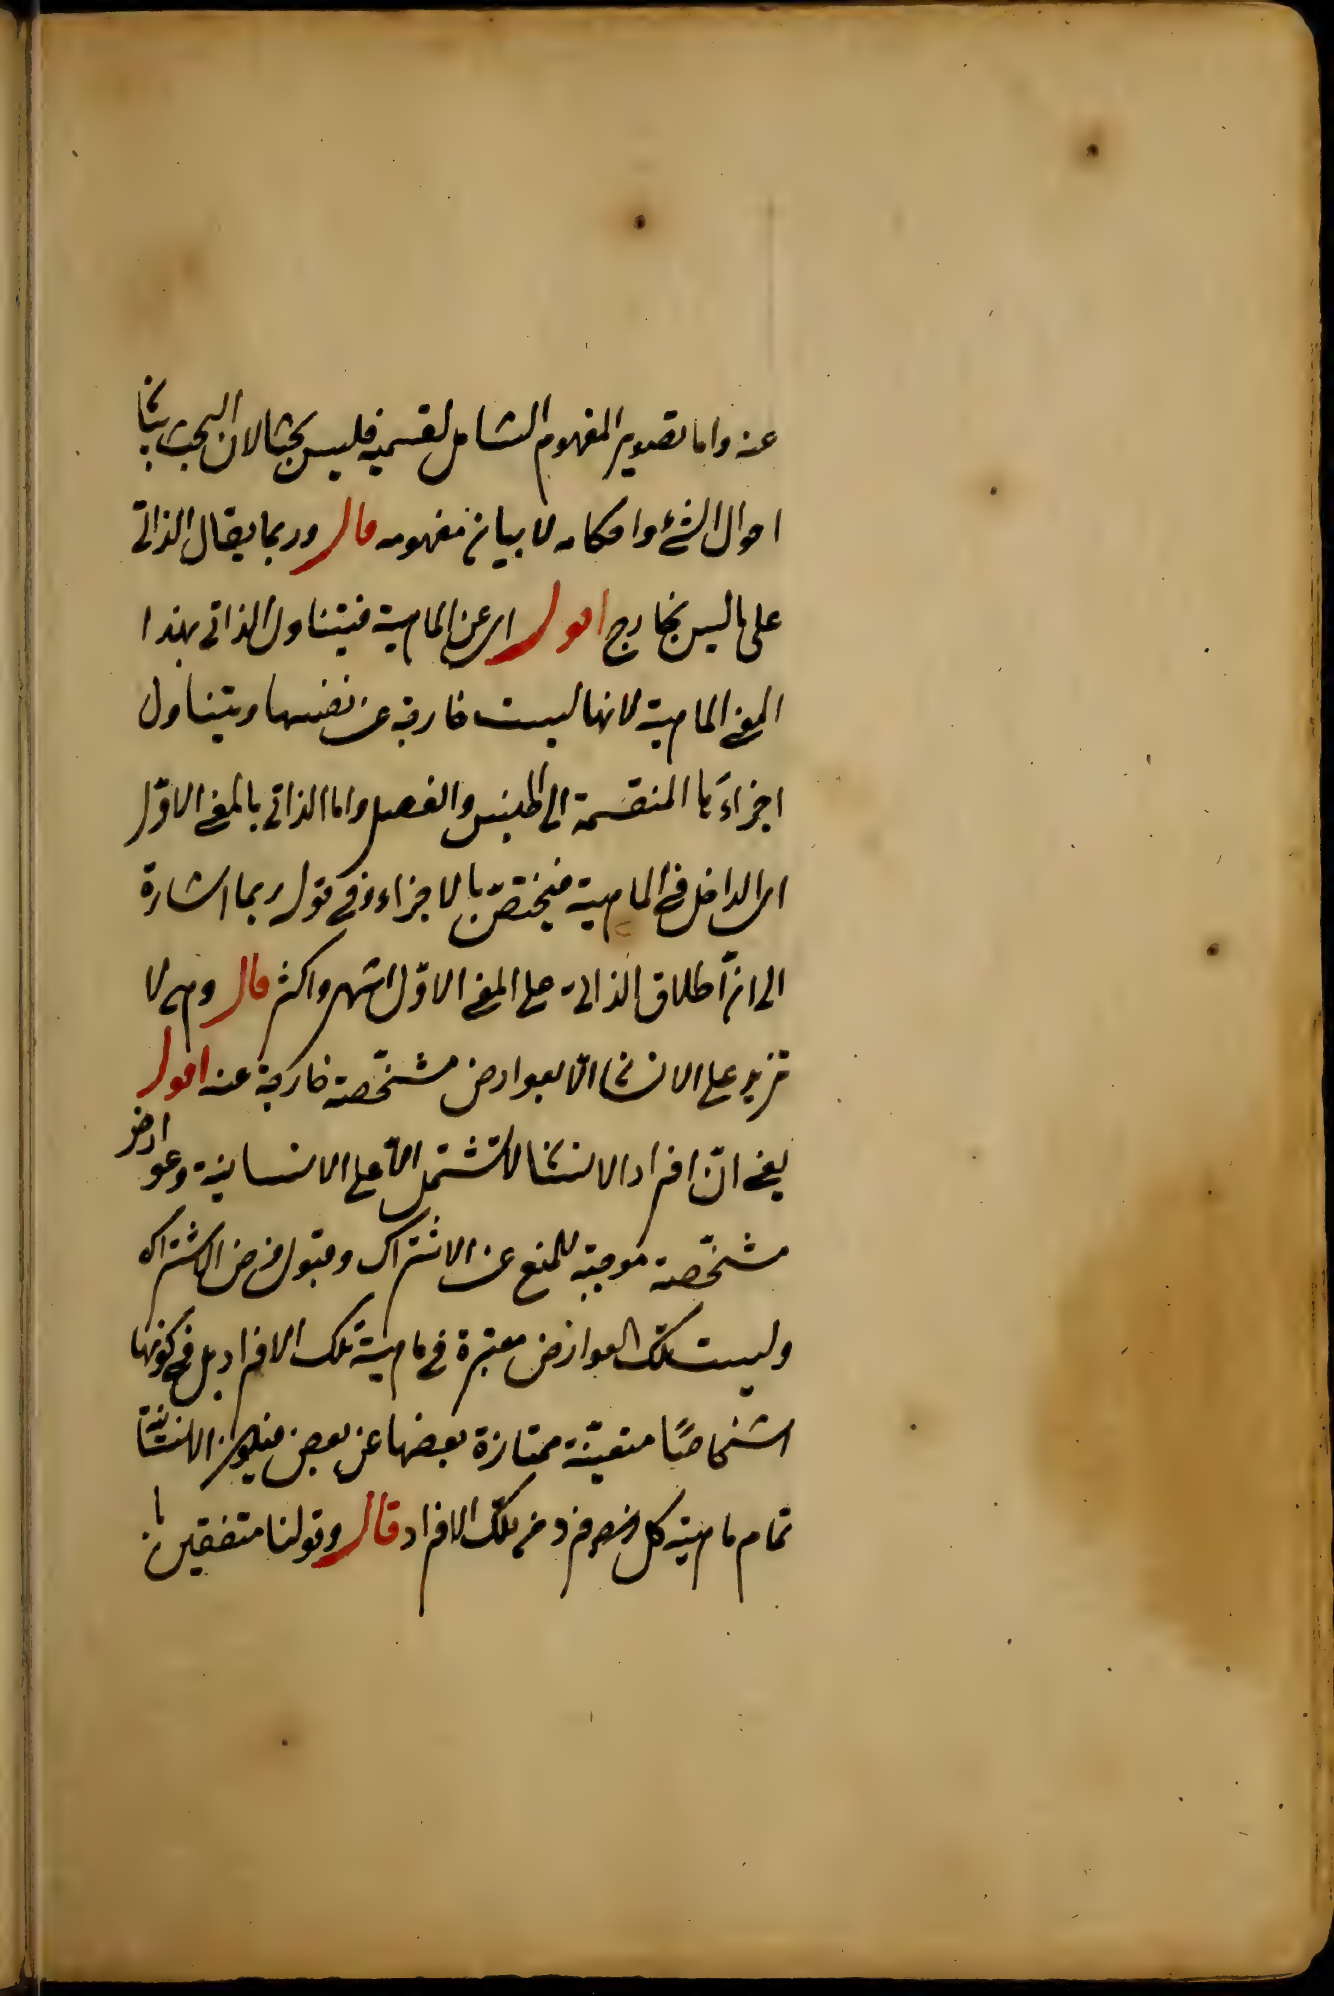 عنه واما تصوير المفهوم الشامل لقسميه فليس بحثا لان البحث بيان
احوال الشئ واحكامه لا بيان مفهومه قال وربما يقال الذاتى
على ما ليس بخارج اقول اى عن الماهية فيتناول الذاتى بهذا
المعنى الماهية لانها ليست خارجة عن نفسها ويتناول
اجزاءَها المنقسمة الى الجنس والفصل واما الذاتى بالمعنى الاوّل
اى الداخل فى الماهية فيختصّ بالاجزاء وفى قوله ربما اشارة
الى انّ اطلاق الذاتى على المعنى الاوّل اشهر واكثر قال وهى لا
تزيد على الانسان الّا بعوارض مشخّصة خارجة عنه اقول
يعنى انّ افراد الانسان لا تشتمل الّا على الانسانية وعوارض
مشخّصة موجبة للمنع عن الاشتراك وقبول فرض الاشتراك
وليست تلك العوارض معتبرة فى ماهية تلك الافراد بل فى كونها
اشخاصًا متعيّنة ممتازة بعضها عن بعض فيكون الانسانية
تمام ماهية كل فرد فرد من تلك الافراد قال وقولنا متفقين با